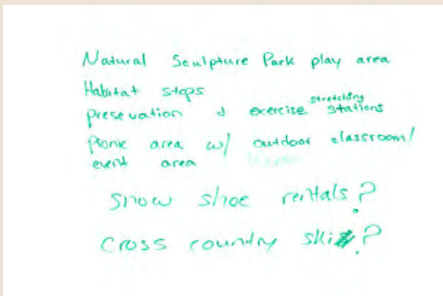 Natural Sculpture Park play area
Habitat stops
stretching
preservation & exercise stations
Picnic area w/ outdoor classroom/
event area
Snow shoe rentals?
Cross country ski?